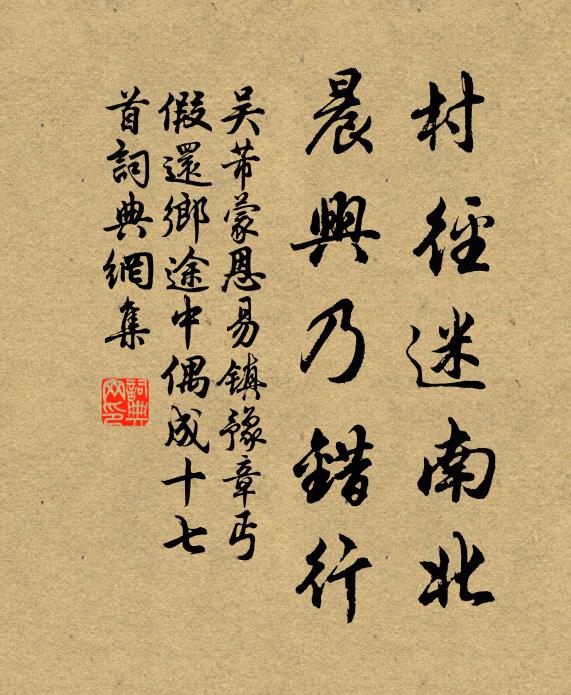 村徑迷南北
晨興乃錯行
吳芾蒙恩易鎮豫章丐
假還鄉途中偶成十七
首詞典網集
詞典
网印